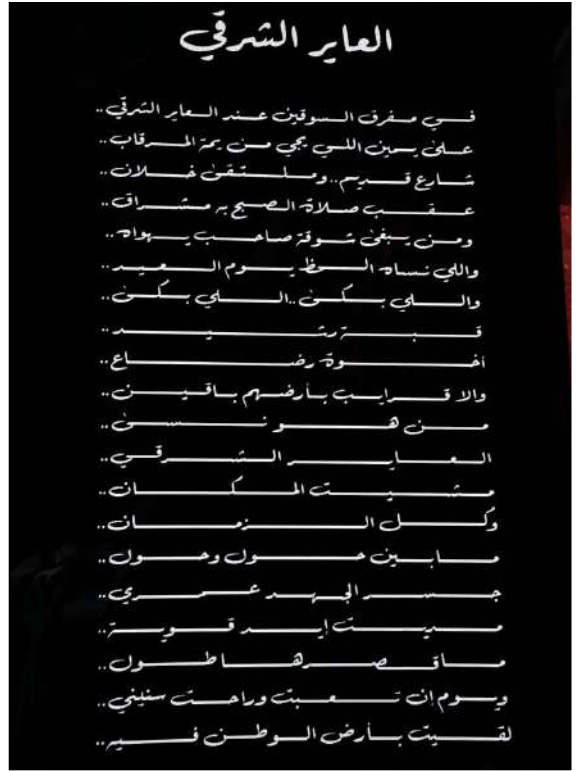 العاير الشرقي
في مفرق السوقين عند العاير الشرقي..
على يمين اللي يجي من يمة المرقاب..
شارع قديم.. وملتقى خلان..
عقب صلاة الصبح به مشراق..
ومن يبغى شوفة صاحب يهواه..
واللي نساه الحظ يوم العيد..
واللي بكى.. اللي بكى..
قبة رشيد..
أخوة رضاع..
والا قرايب بأرضهم باقين..
من هو نسى..
العاير الشرقي..
مشيت المكان..
وكل الزمان..
مابين حول وحول..
جسر الجهد عمري..
مديت إيد قوية..
ماقصرها طول..
ويوم ان تعبت وراحت سنيني..
لقيت بأرض الوطن فيه..